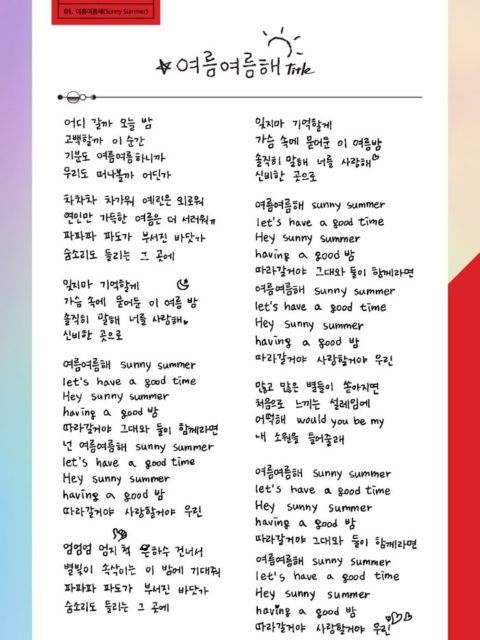 01. 여름여름해(Sunny Summer)
여름여름해 Title
어디 갈까 오늘 밤
고백할까 이 순간
기분도 여름여름하니까
우리도 떠나볼까 어딘가
차차차 차가워 예린은 외로워
연인만 가득한 여름은 더 서러워ㅠ
파파파 파도가 부서진 바닷가
숨소리도 들리는 그 곳에
잊지마 기억할게
가슴 속에 묻어둔 이 여름 밤
솔직히 말해 너를 사랑해
신비한 곳으로
여름여름해 sunny summer
let's have a good time
Hey sunny summer
having a good 밤
따라갈거야 그대와 둘이 함께라면
넌 여름여름해 sunny summer
let's have a good time
Hey sunny summer
having a good 밤
따라갈거야 사랑할거야 우린
엄엄엄 엄지 척 은하수 건너서
별빛이 속삭이는 이 밤에 기대줘
파파파 파도가 부서진 바닷가
숨소리도 들리는 그 곳에
잊지마 기억할게
가슴 속에 묻어둔 이 여름밤
솔직히 말해 너를 사랑해
신비한 곳으로
여름여름해 sunny summer
let's have a good time
Hey sunny summer
having a good 밤
따라갈거야 그대와 둘이 함께라면
여름여름해 sunny summer
let's have a good time
Hey sunny summer
having a good 밤
따라갈거야 사랑할거야 우린
많고 많은 별들이 쏟아지면
처음으로 느끼는 설레임에
어떡해 would you be my
내 소원을 들어줄래
여름여름해 sunny summer
let's have a good time
Hey sunny summer
having a good 밤
따라갈거야 그대와 둘이 함께라면
여름여름해 sunny summer
let's have a good time
Hey sunny summer
having a good 밤
따라갈거야 사랑할거야 우린